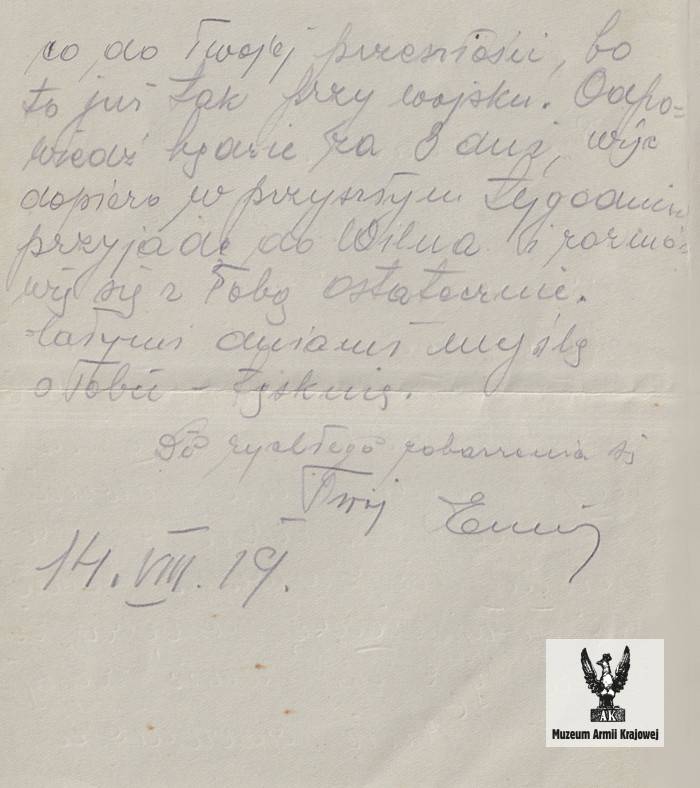 co do Twojej przeszłości, bo
to już tak przy wojsku. Odpo=
wiedź będzie za 8 dni, więc
dopiero w przyszłym tygodniu
przyjadę do Wilna i rozmó-
wię się z Tobą ostatecznie.
=łatymi dniami myślę
o Tobie - tęsknię.
Do rychłego zobaczenia się
Twój
14.VIII.19.
AK
Muzeum Armii Krajowej